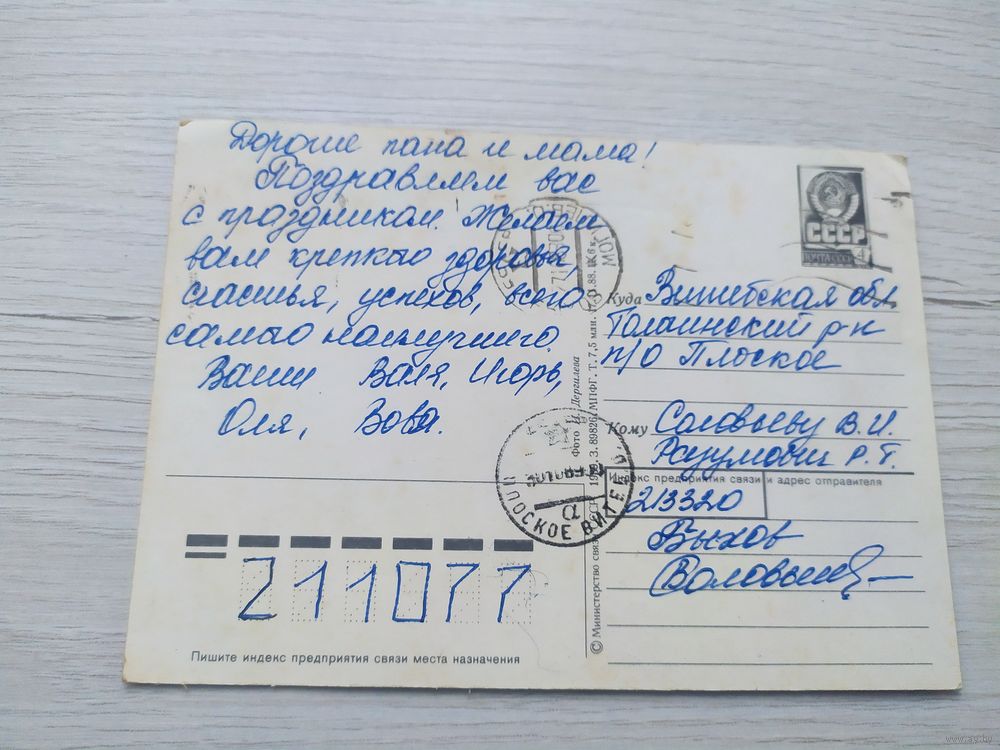 Дорогие папа и мама!
Поздравляем вас
с праздником. Желаем
вам крепкого здоровья,
счастья, успехов, всего
самого наилучшего.
Ваши Валя, Игорь,
Оля, Вова.
СССР
ПОЧТА СССР 4
Куда Витебская обл
Толочинский р-н
п/о Плоское
Кому Соловьеву В.И.
Разумович Р.Т.
Индекс предприятия связи и адрес отправителя
213320
Быхов
ПЛОСКОЕ ВИТЕБ.О.
211077
Пишите индекс предприятия связи места назначения
© Министерство связи СССР
З. 89826. МПФГ. Т. 7,5 млн.
Фото И. Дергилева